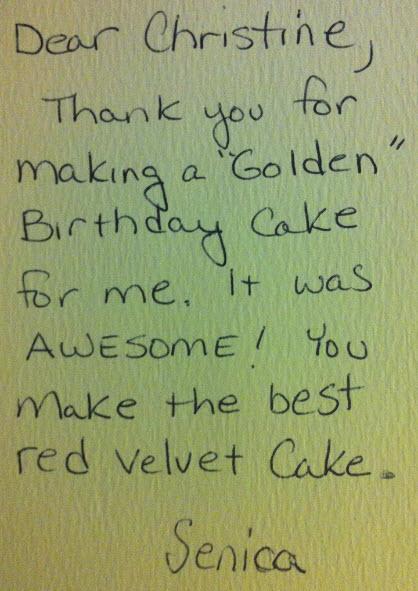 Dear Christine,
Thank you for
making a "Golden"
Birthday Cake
for me. It was
AWESOME! You
make the best
red velvet Cake.
Senica